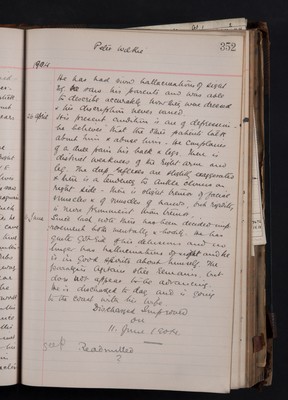 Peter Wilkie
352
1904
He has had vivid hallucinations of sight
he saw his parents and was able
to describe accurately how they were dressed
& his description never varied.
26 April
His present condition is one of depression.
he believes that the other patients talk
about him & abuse him. He complains
of a dull pain in his back & legs. There is
distinct weakness of his right arm and
leg. The deep reflexes are slightly exaggerated
& there is a tendency to ankle clonus on
right side. There is slight tremor of facial
muscles & of muscles of hands, but rigidity
is more prominent than tremor.
June
Since last note there has been decided imp-
rovement both mentally & bodily. He has
quite got rid of his delusions and no
longer has hallucinations of sight and he
is in good spirits about himself. The
paralysis agitans still remains, but
does not appear to be advancing.
He is discharged to day and is going
to the coast with his wife.
Discharged Improved
on
11. June 1904.
Readmitted
?